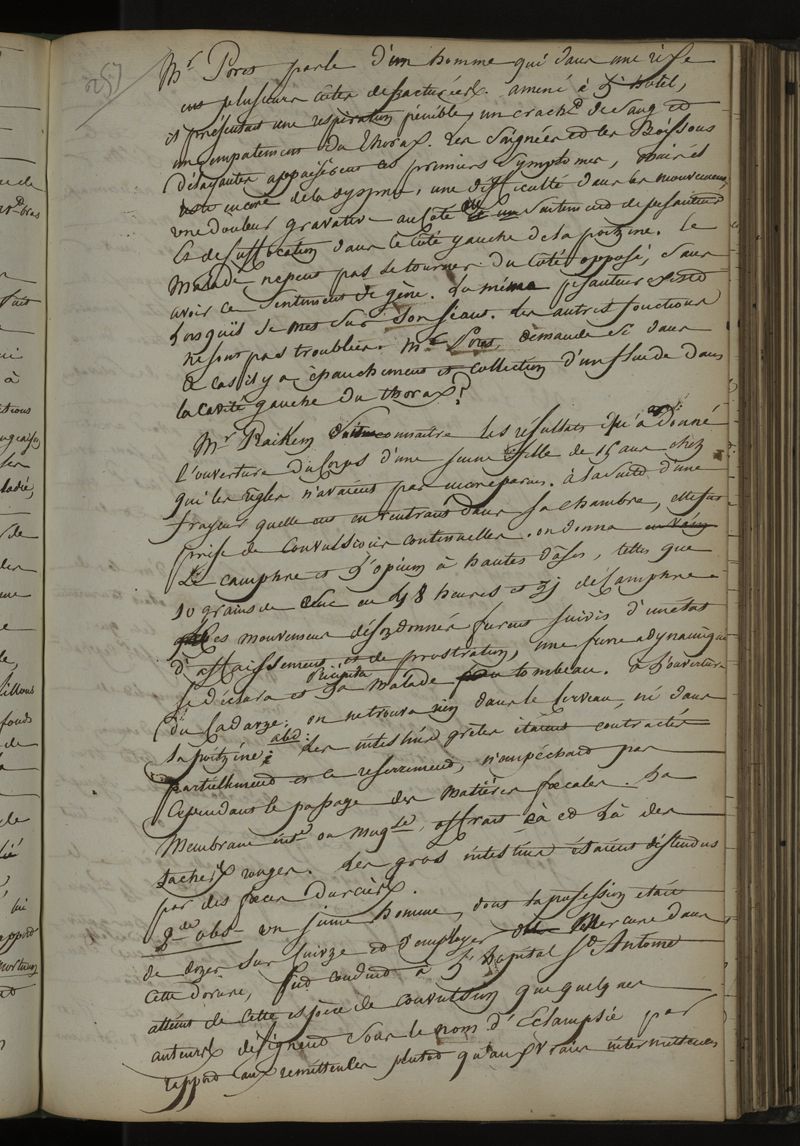 257
Mr. Porez parle d'un homme qui dans une rixe
eut plusieurs côtes de fracturées. amené à l'hotel,
et présentant une respiration pénible, un crachmt de sang et
un empatement du thorax. les saignées et les Boissons
délayantes appaisèrent ces premiers symptomes, mais il
reste encore de la dyspnée, une difficulté dans les mouvemens,
une douleur gravative au côté un sentiment de pesanteur
et de suffocation dans le côté gauche de la poitrine. le
malade ne peut pas se tourner du côté opposé, sans
avoir ce sentiment de gène. la même pesanteur existe
lorsqu'il se met sur son séant. les autres fonctions
ne sont pas troublées. Mr. Porez demande si dans
ce cas il y a épanchement et collection d'un fluide dans
la cavité gauche du thorax?
Mr Raikem connaitre les résultats qu'a donné
l'ouverture du corps d'une jeune fille de 15 ans chez
qui les règles n'avaient pas encore parus. à la suite d'une
frayeur quelle eut en rentrant dans sa chambre, elle fut
prise de convulsions continuelles. on donna
le camphre et l'opium à hautes doses, telles que
10 grains de en 48 heures et de camphre
ces mouvemens désordonnés furent suivis d'un état
d'affaissement et de prostration, une fievre adynamique
se déclara et la malade au tombeau. à l'ouverture
du cadavre: on ne trouva rien dans le cerveau, ni dans
la poitrine; abd: les intestins grèles étaient contractés
partiellement et ce resserrement, n'empéchait pas
cependant le passage des matières fœcales. la
membrane intne ou muqse, offrait çà et là des
taches rouges. les gros intestins étaient distendus
par des fœces durcies.
2de obs. un jeune homme, dont la profession était
de dorer sur cuivre et d'employer le Mercure dans
cette dorure, fut conduit à l'hopital St Antoine
atteint de cette espèce de convulsion que quelques
auteurs désignent sous le nom d'Eclampsie par
rapport aux remittentes plutot qu'aux vraies intermittentes